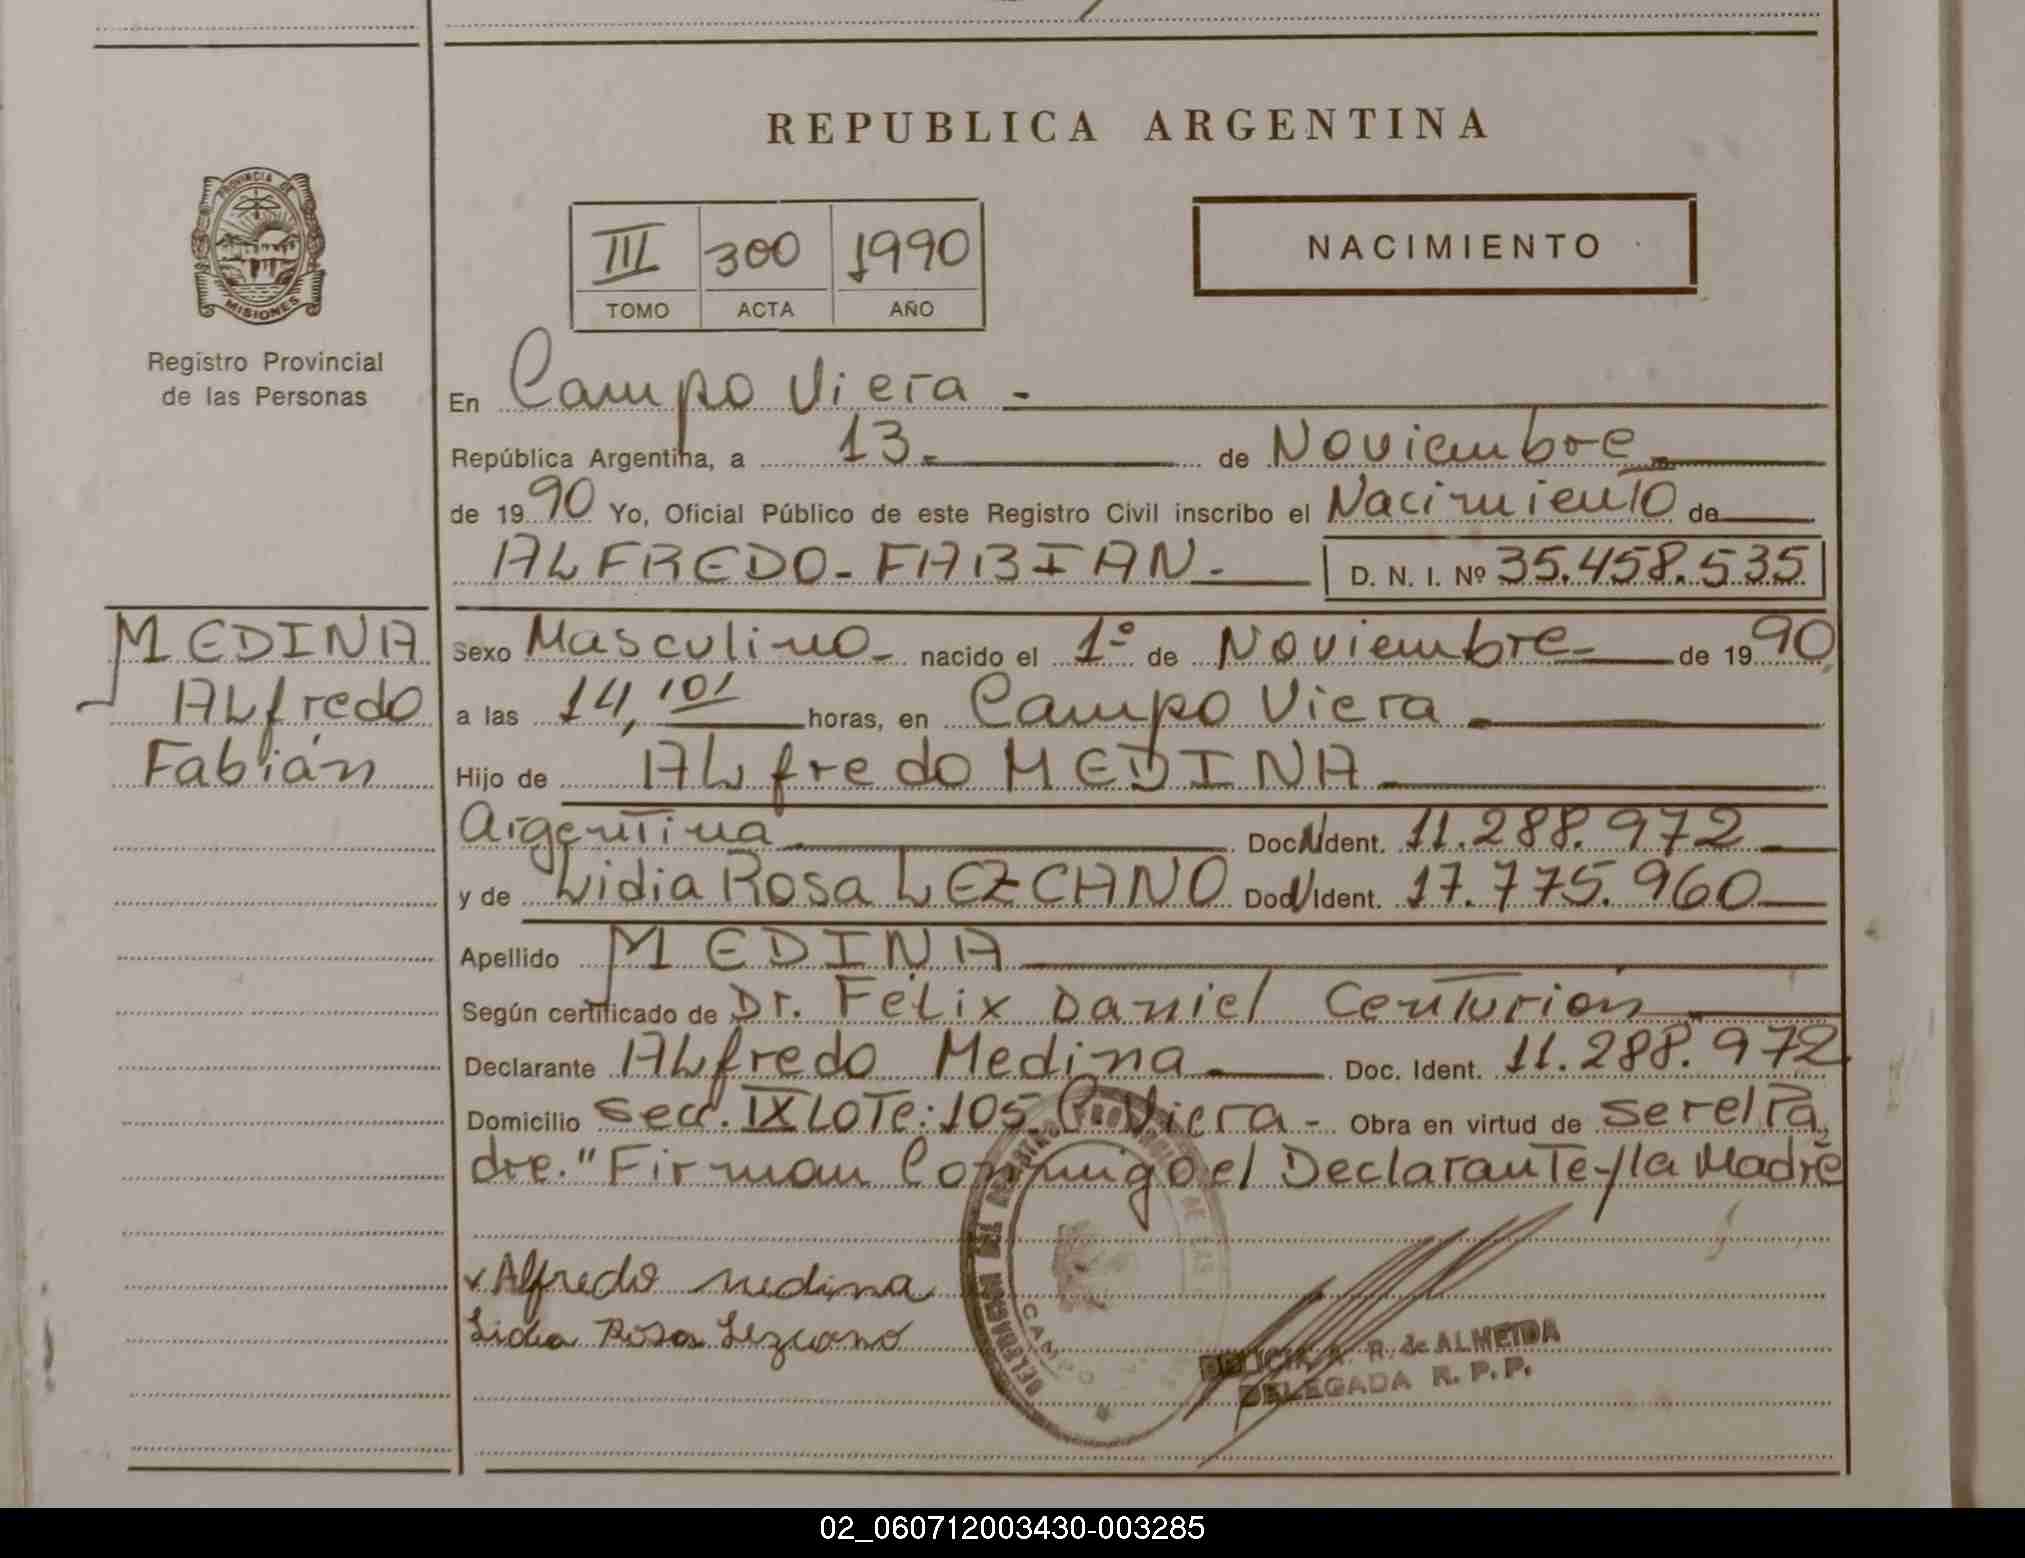 REPUBLICA ARGENTINA
PROVINCIA DE
MISIONES
Registro Provincial
de las Personas
III 300 1990
TOMO ACTA AÑO
NACIMIENTO
En Campo Viera -
República Argentina, a 13.- de Noviembre
de 1990 Yo, Oficial Público de este Registro Civil inscribo el Nacimiento de
ALFREDO - FABIAN.- D. N. I. Nº 35.458.535
MEDINA
Alfredo
Fabián
Sexo Masculino - nacido el 1º de Noviembre - de 1990,
a las 14,10' horas, en Campo Viera -
Hijo de Alfredo MEDINA -
Argentina - Doc. Ident. 11.288.972
y de Lidia Rosa LEZCANO Doc. Ident. 17.775.960
Apellido MEDINA
Según certificado de Dr. Félix Daniel Centurión
Declarante Alfredo Medina - Doc. Ident. 11.288.972
Domicilio Secc. IX LOTE: 105. C. Viera - Obra en virtud de ser el Pa
dre." Firman Conmigo el Declarante y la Madre
Alfredo medina
Lidia Rosa Lezcano
CAMPO
R. de ALMEIDA
DELEGADA R. P. P.
02_060712003430-003285